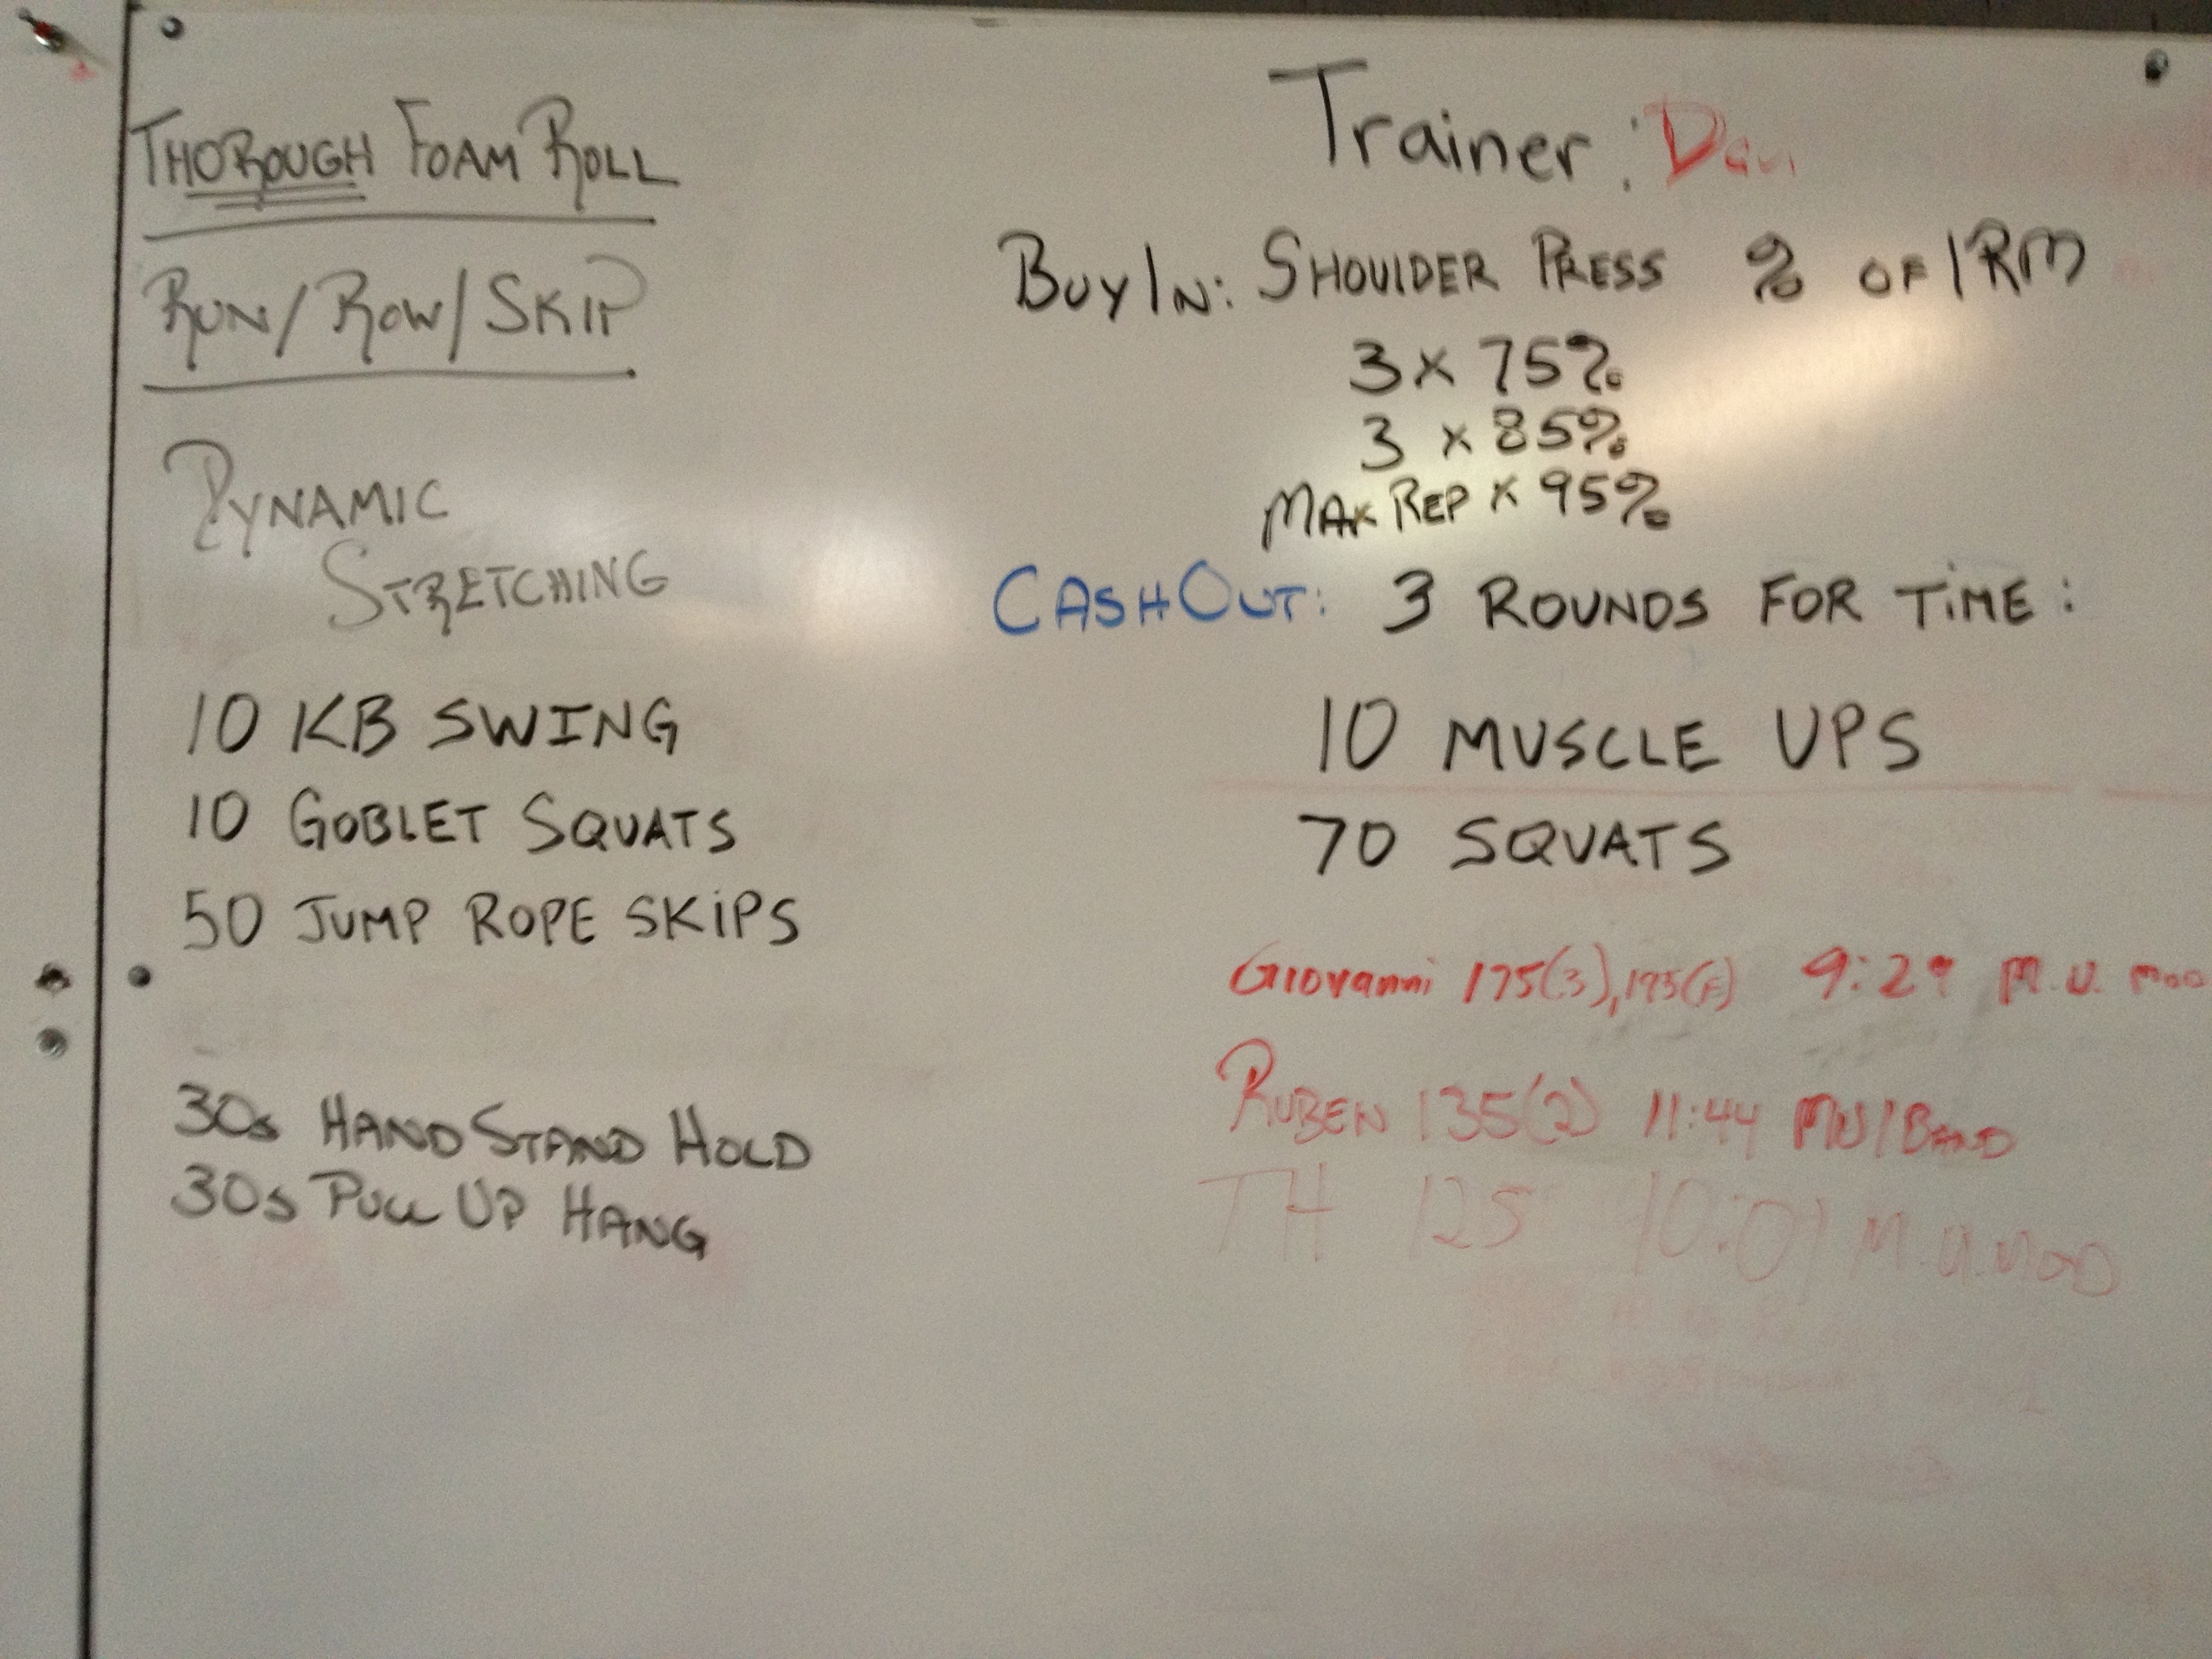 THOROUGH FOAM ROLL
RUN/ROW/SKIP
DYNAMIC
STRETCHING
10 KB SWING
10 GOBLET SQUATS
50 JUMP ROPE SKIPS
30s HANDSTAND HOLD
30s PULL UP HANG
Trainer:
BUY IN: SHOULDER PRESS % OF 1RM
3 x 75%
3 x 85%
MAX REP x 95%
CASH OUT: 3 ROUNDS FOR TIME:
10 MUSCLE UPS
70 SQUATS
Giovanni 175(3), 195(F) 9:29 M.U. MOD
RUBEN 135(2) 11:44 MU/BAND
TH 125 10:01 M.U. MOD